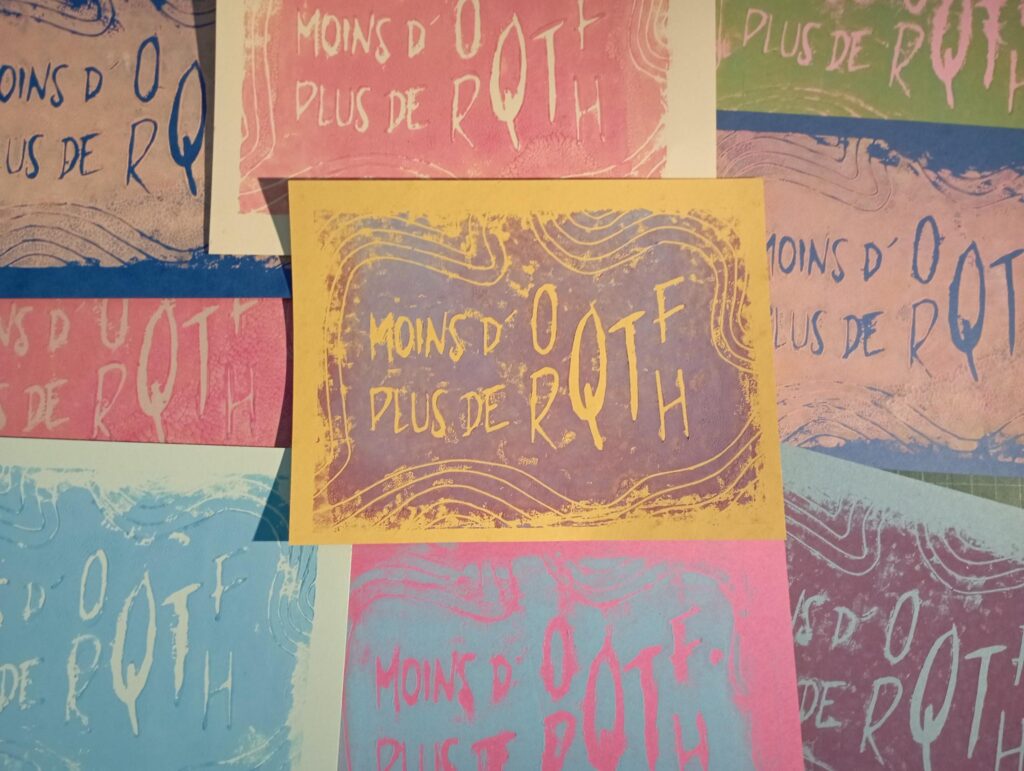 OINS D´ OQ
US DE RQ
MOINS D´ OQTF
PLUS DE RQTH
PLUS DE RQTH
MOINS D´ OQTF
PLUS DE RQTH
MOINS D´ OQT
PLUS DE RQT
NS D´ OQTF
DE RQTH
D´ OQTF
DE RQTH
MOINS D´ OQTF
PLUS DE RQTH
NS D´ OQT
DE RQTH